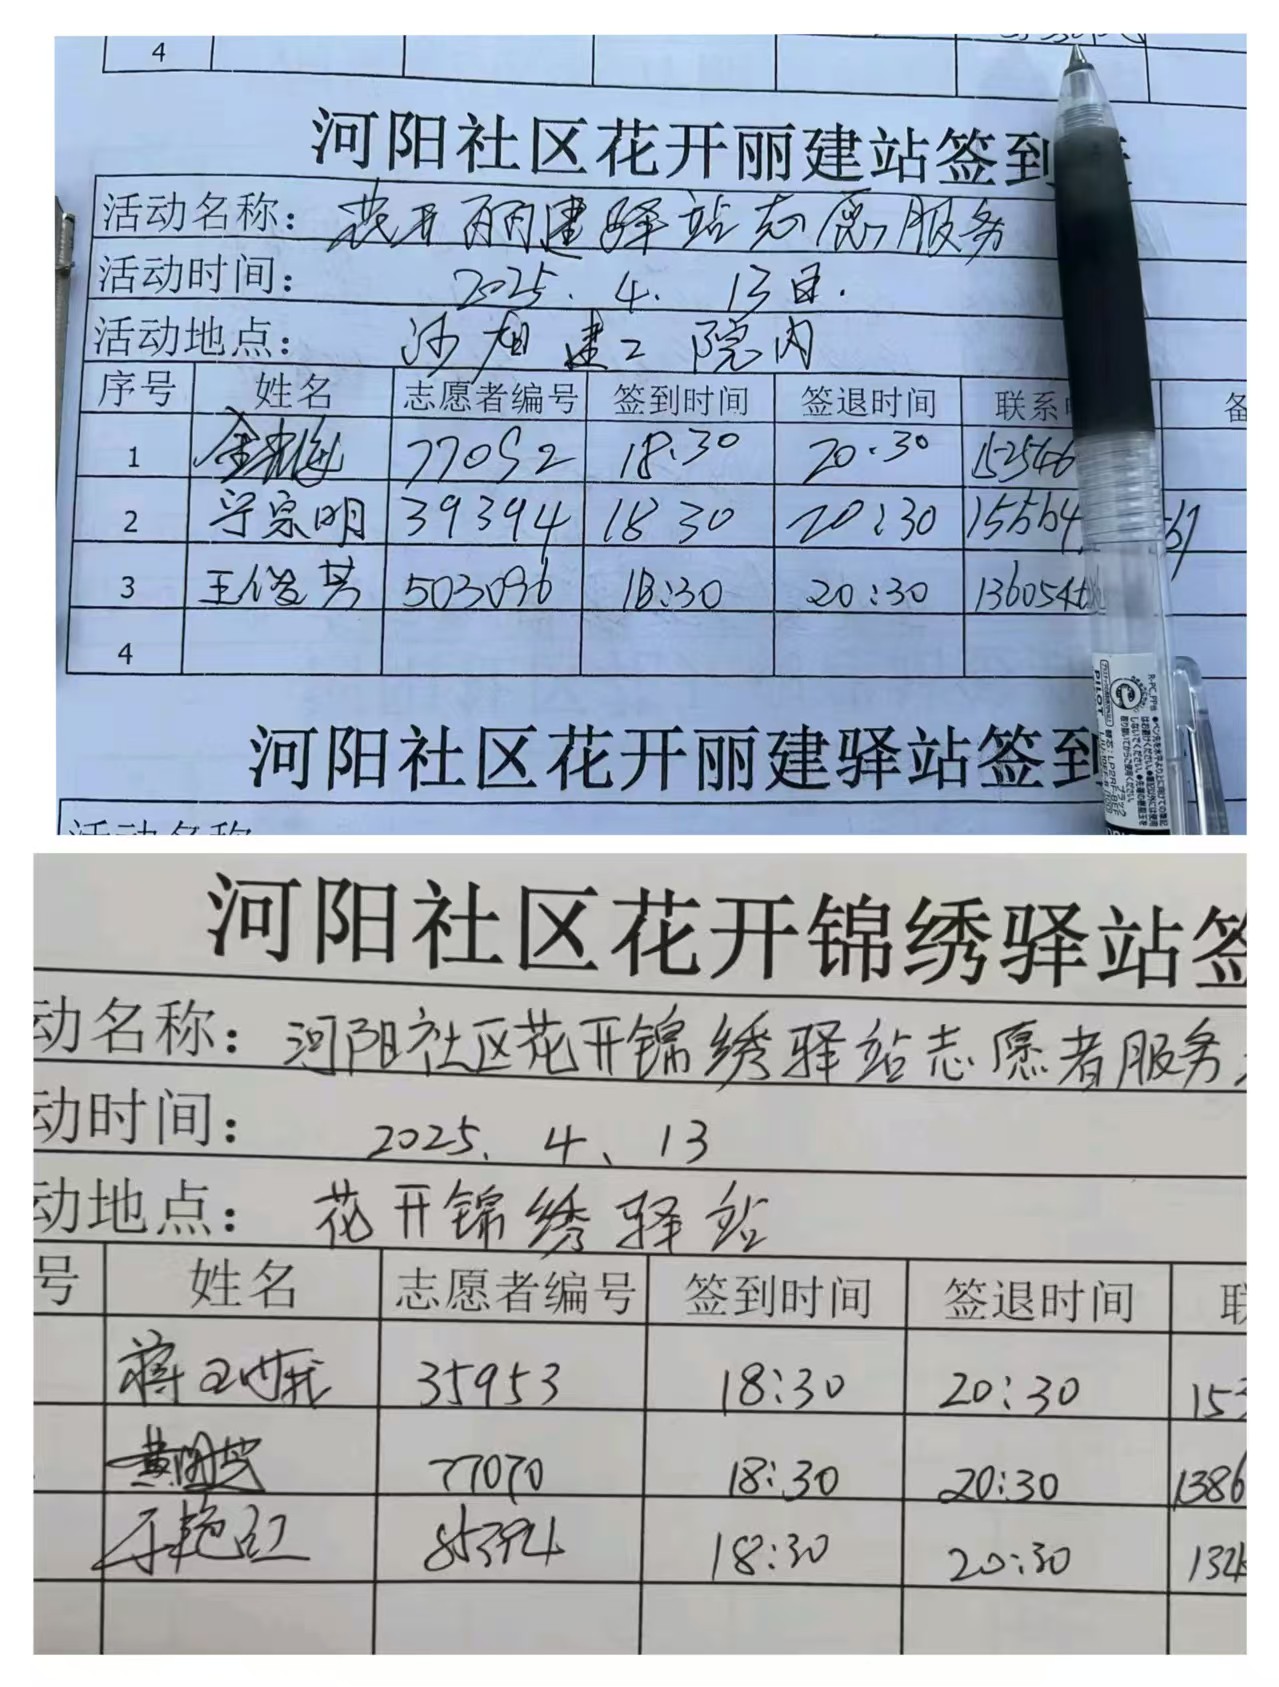 4
河阳社区花开丽建站签到
活动名称：花开丽建驿站志愿服务
活动时间：2025.4.13日.
活动地点：沙旭建工院内
序号 姓名 志愿者编号 签到时间 签退时间 联系
1 77052 18:30 20:30 152546
2 宁宗明 39394 18 30 20:30 15564 61
3 王俊芳 503096 18:30 20:30 136054
4
河阳社区花开丽建驿站签到
活动名称
PILOT
河阳社区花开锦绣驿站签
动名称：河阳社区花开锦绣驿站志愿者服务
动时间：2025、4、13
动地点：花开锦绣驿站
号 姓名 志愿者编号 签到时间 签退时间 联
35953 18:30 20:30 153
77070 18:30 20:30 1386
于艳红 85394 18:30 20:30 132